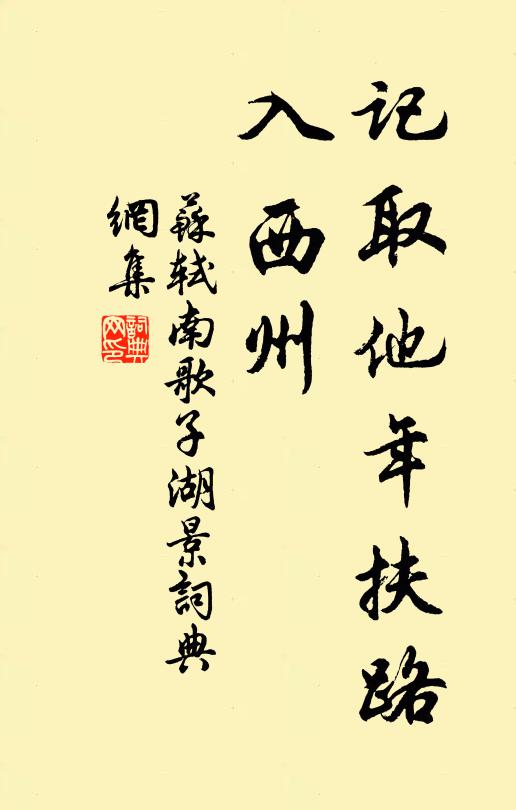 记取他年扶路
入西州
蘇軾南歌子湖景詞典
網集
詞典
网印